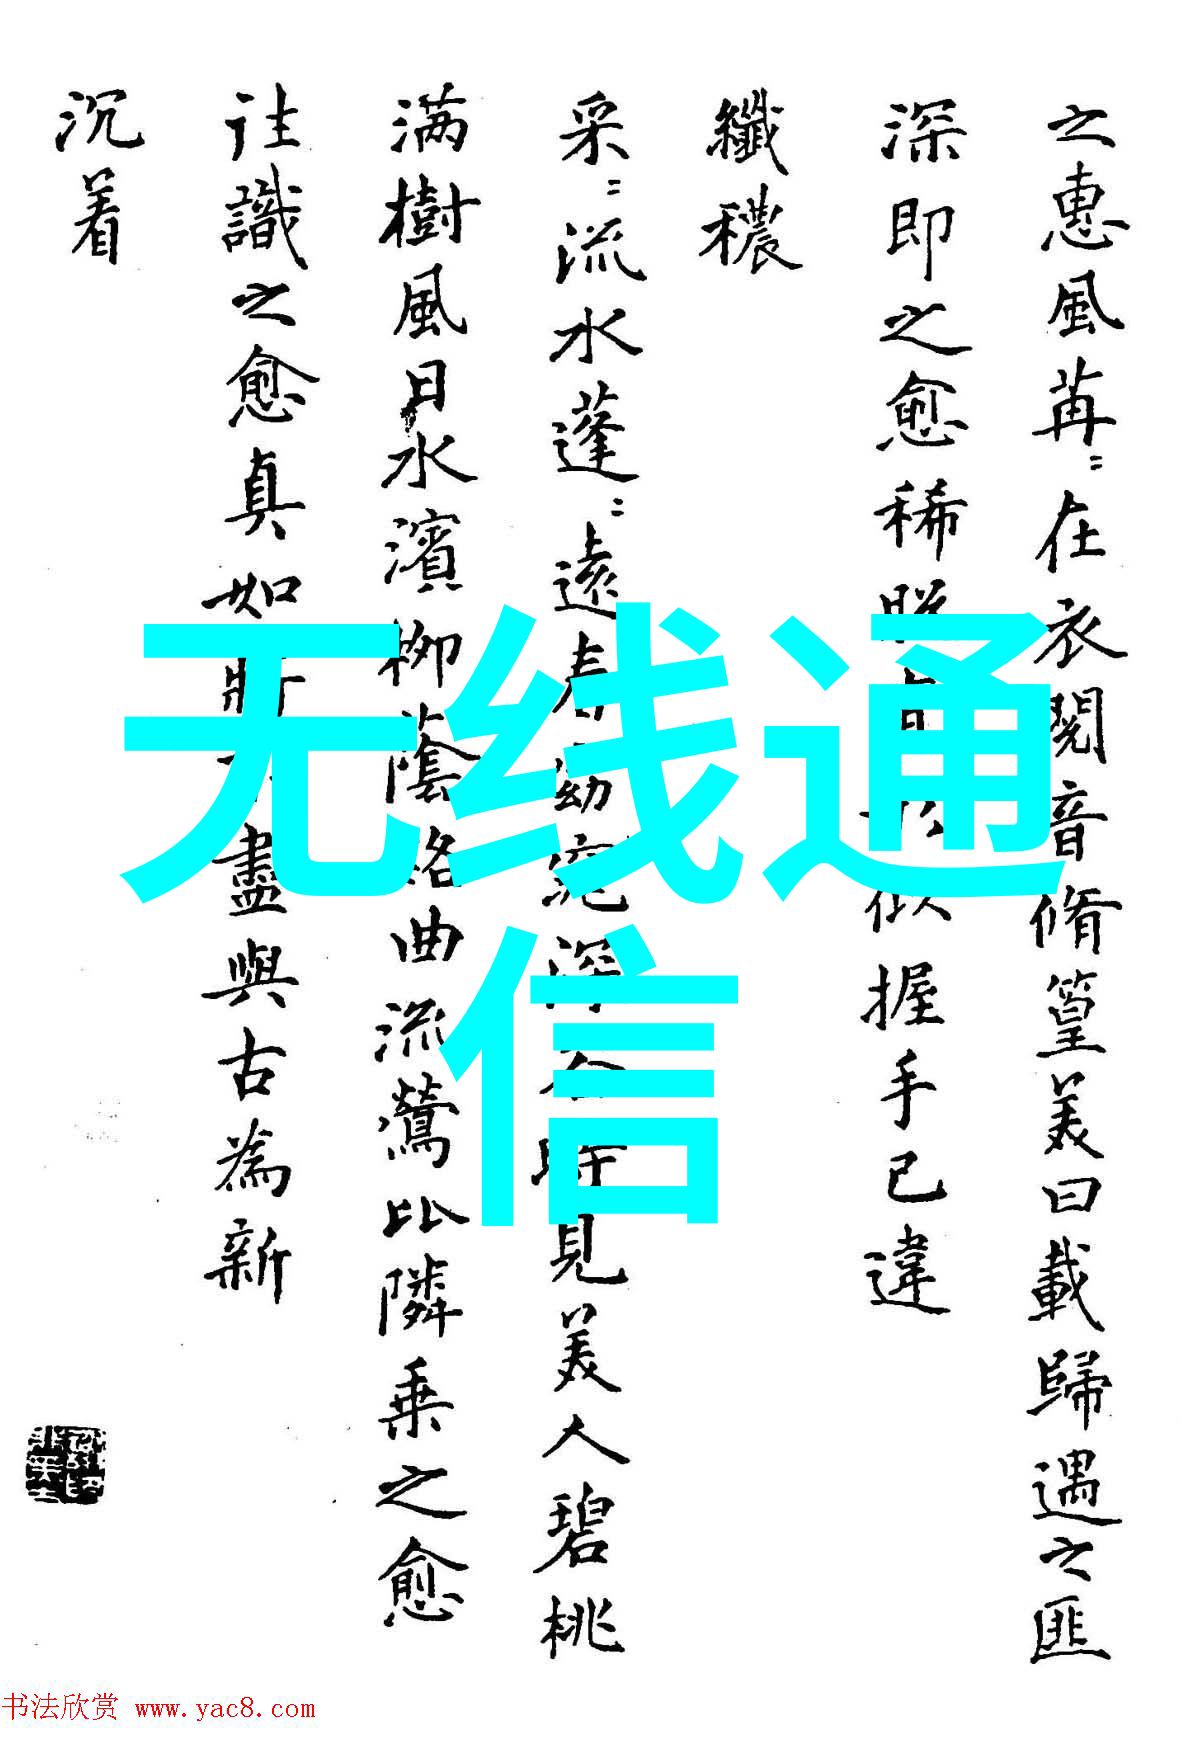 之惠風苒〻在衣閱音脩篁美曰載歸遇之匪
深即之愈稀握手已違
纖穠
采〻流水蓬〻遠春窈窕深谷時見美人碧桃
满樹風日水濱柳蔭路曲流鶯比隣乘之愈
往識之愈真如將盡與古為新
沉着
无线通
信
书法欣赏 www.yac8.com